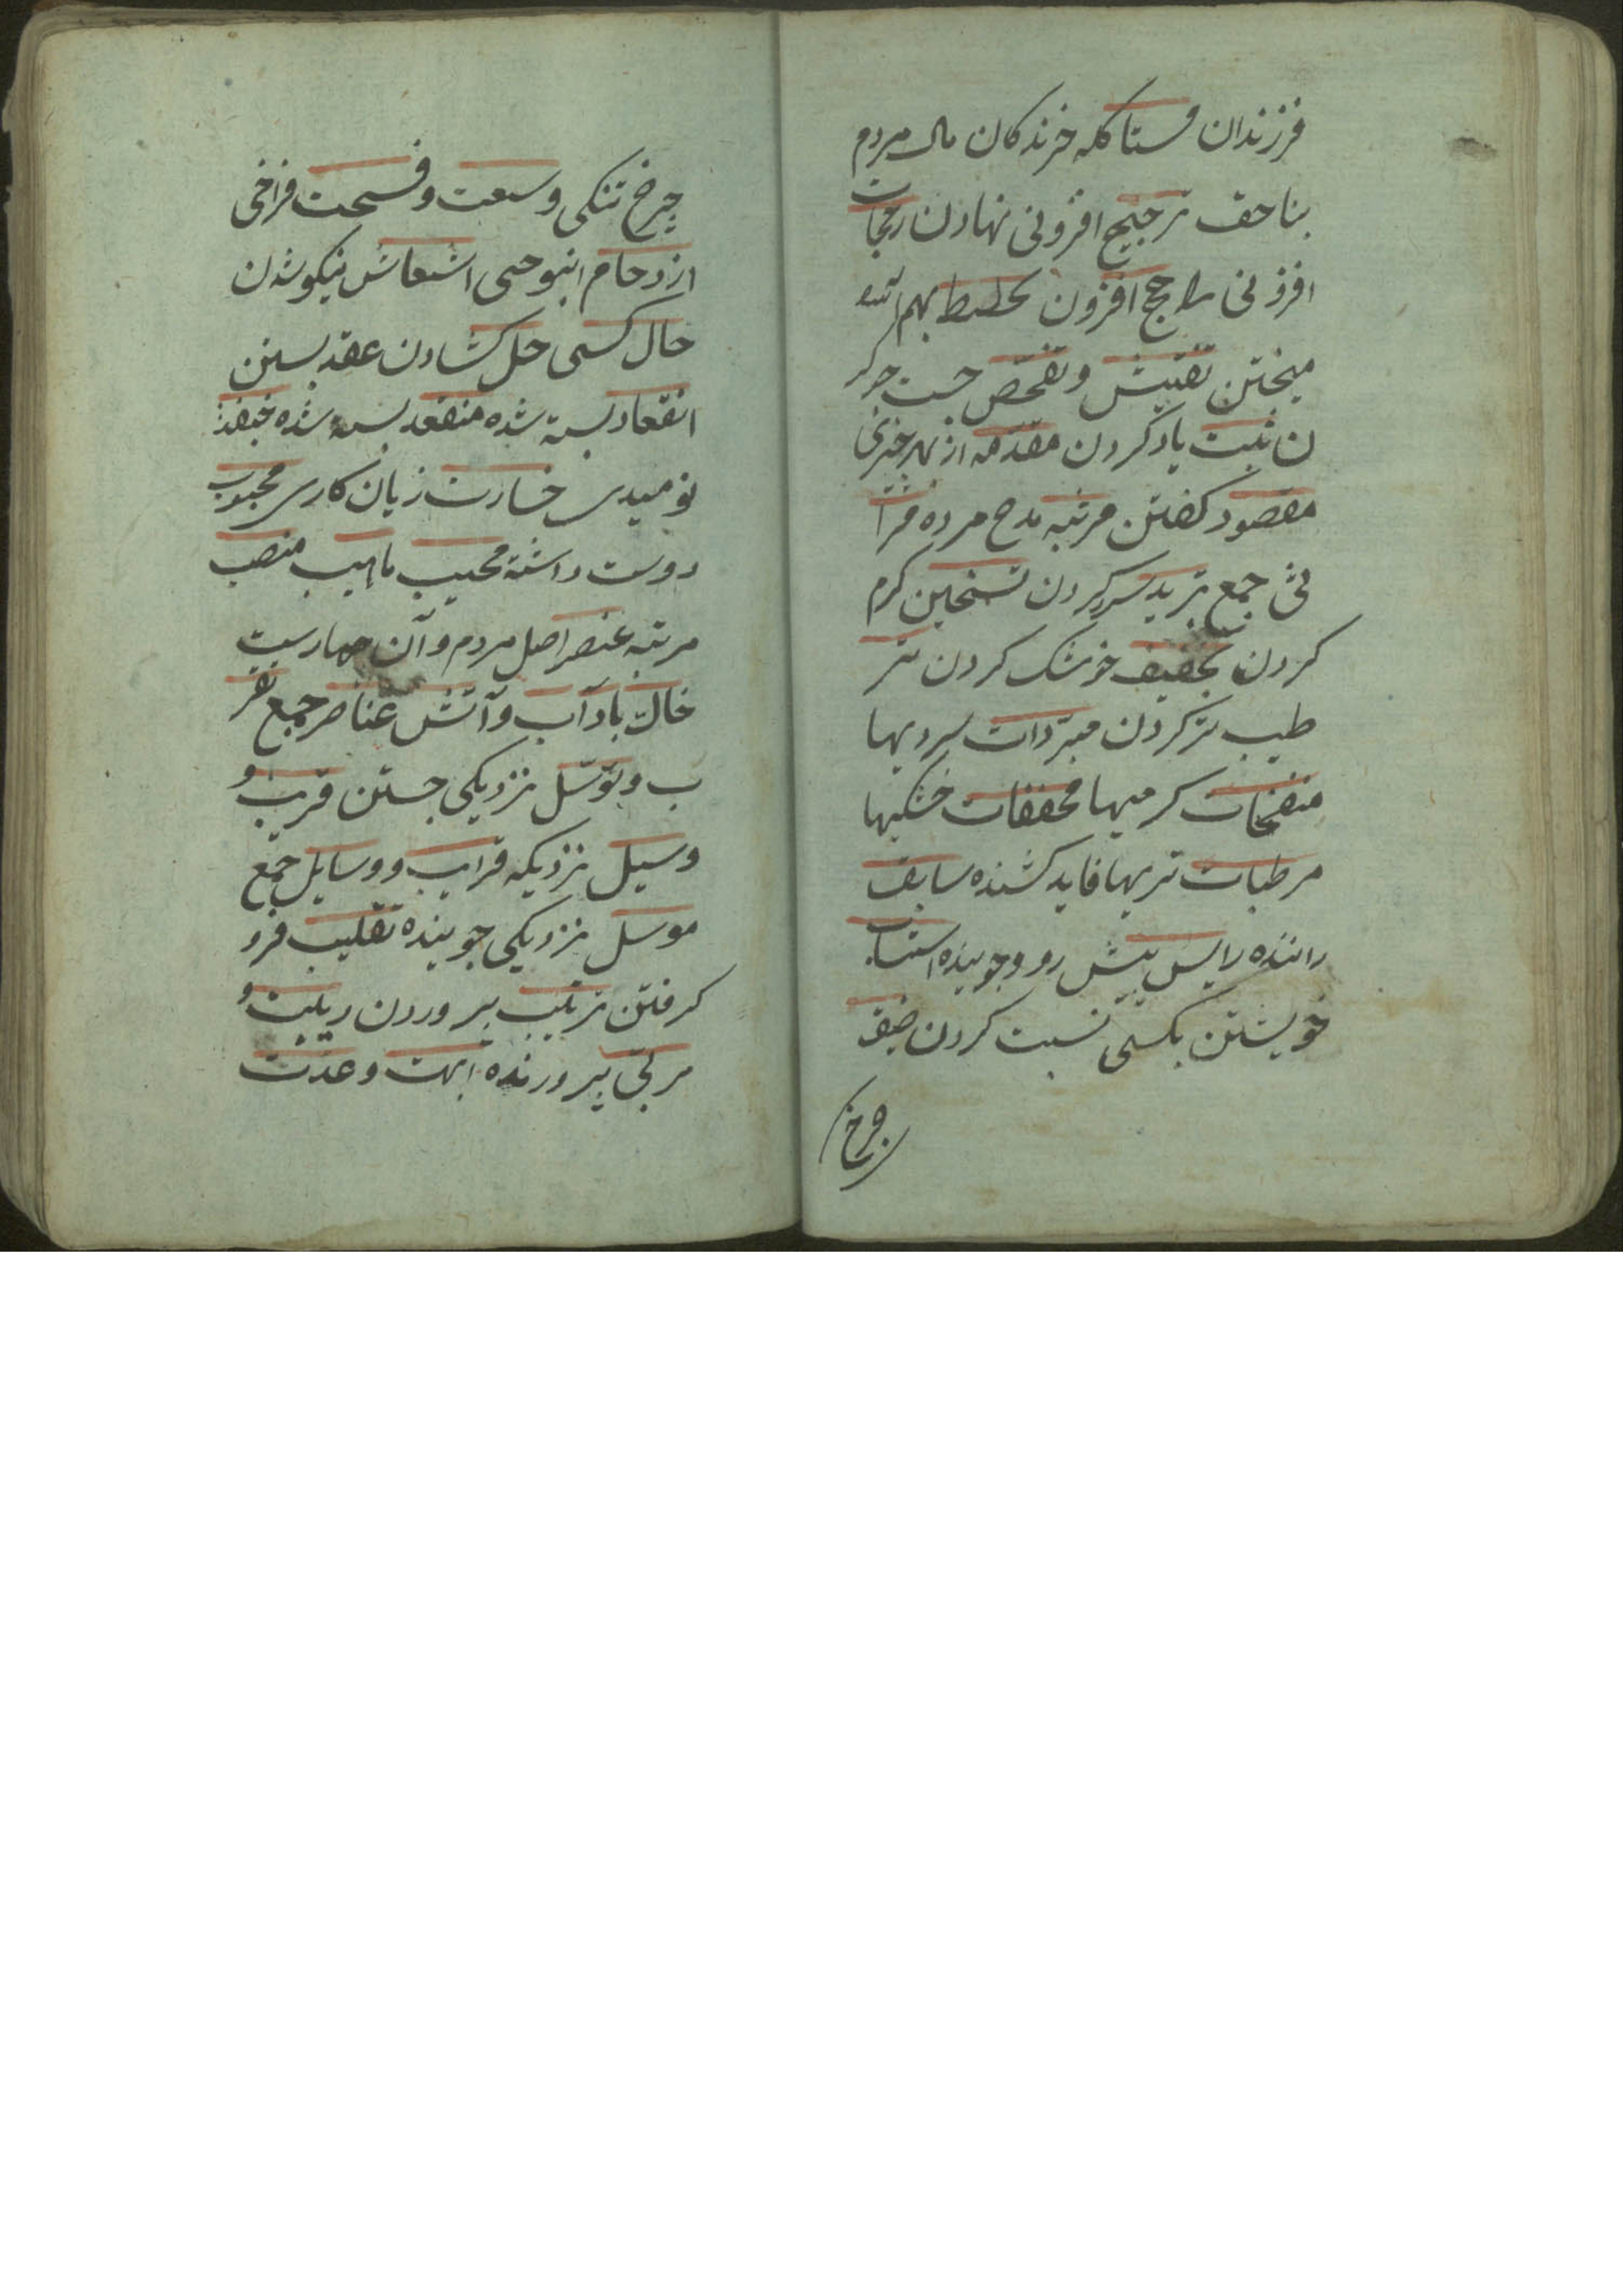 فرزندان مستاکله خرندکان مال مردم
بناحق ترجیح افزونی نهادن رجحان
افزونی راجح افزون تخلیط بهم
میختن تفتیش و تفحص جست جو کر
ن ثبت یاد کردن مقدمه از بهر خبری
مقصود کفتن مرثیه مدح مرده مرا
ثی جمع تبرید سرد کردن تسخین کرم
کردن تجفیف خوشک کردن تر
طیب تر کردن مبردات سردیها
مسخنات کرمیها مجففات خشکیها
مرطبات تریها قاید کشنده سایق
راننده رایس پیش رو و جوینده انتساب
خویشتن بکسی نسبت کردن ضیق
چرخ تنکی وسعت و فسحت فراخی
ازدحام انبوهی انتعاش نیکو شدن
حال کسی حل کشادن عقد بستن
انعقاد بسته شده منعقد بسته شده
نومیدی خسارت زیان کاری محبوب
دوست داشته مهیب باهیب منصب
مرتبه عنصر اصل مردم و آن چهارست
خاک باد آب و آتش عناصر جمع تقر
ب و توسل نزدیکی جستن قربت و
وسیل نزدیکه قرایب و وسایل جمع
موسل نزدیکی جوینده تقلیب فرو
کرفتن تربیت پروردن
مربی پرورنده ابهت و عدت